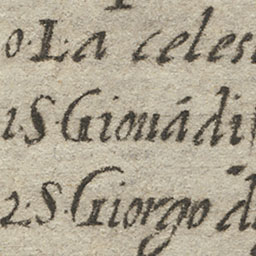 0. La celes
1. S Giouá di
2. S. Giorgo d